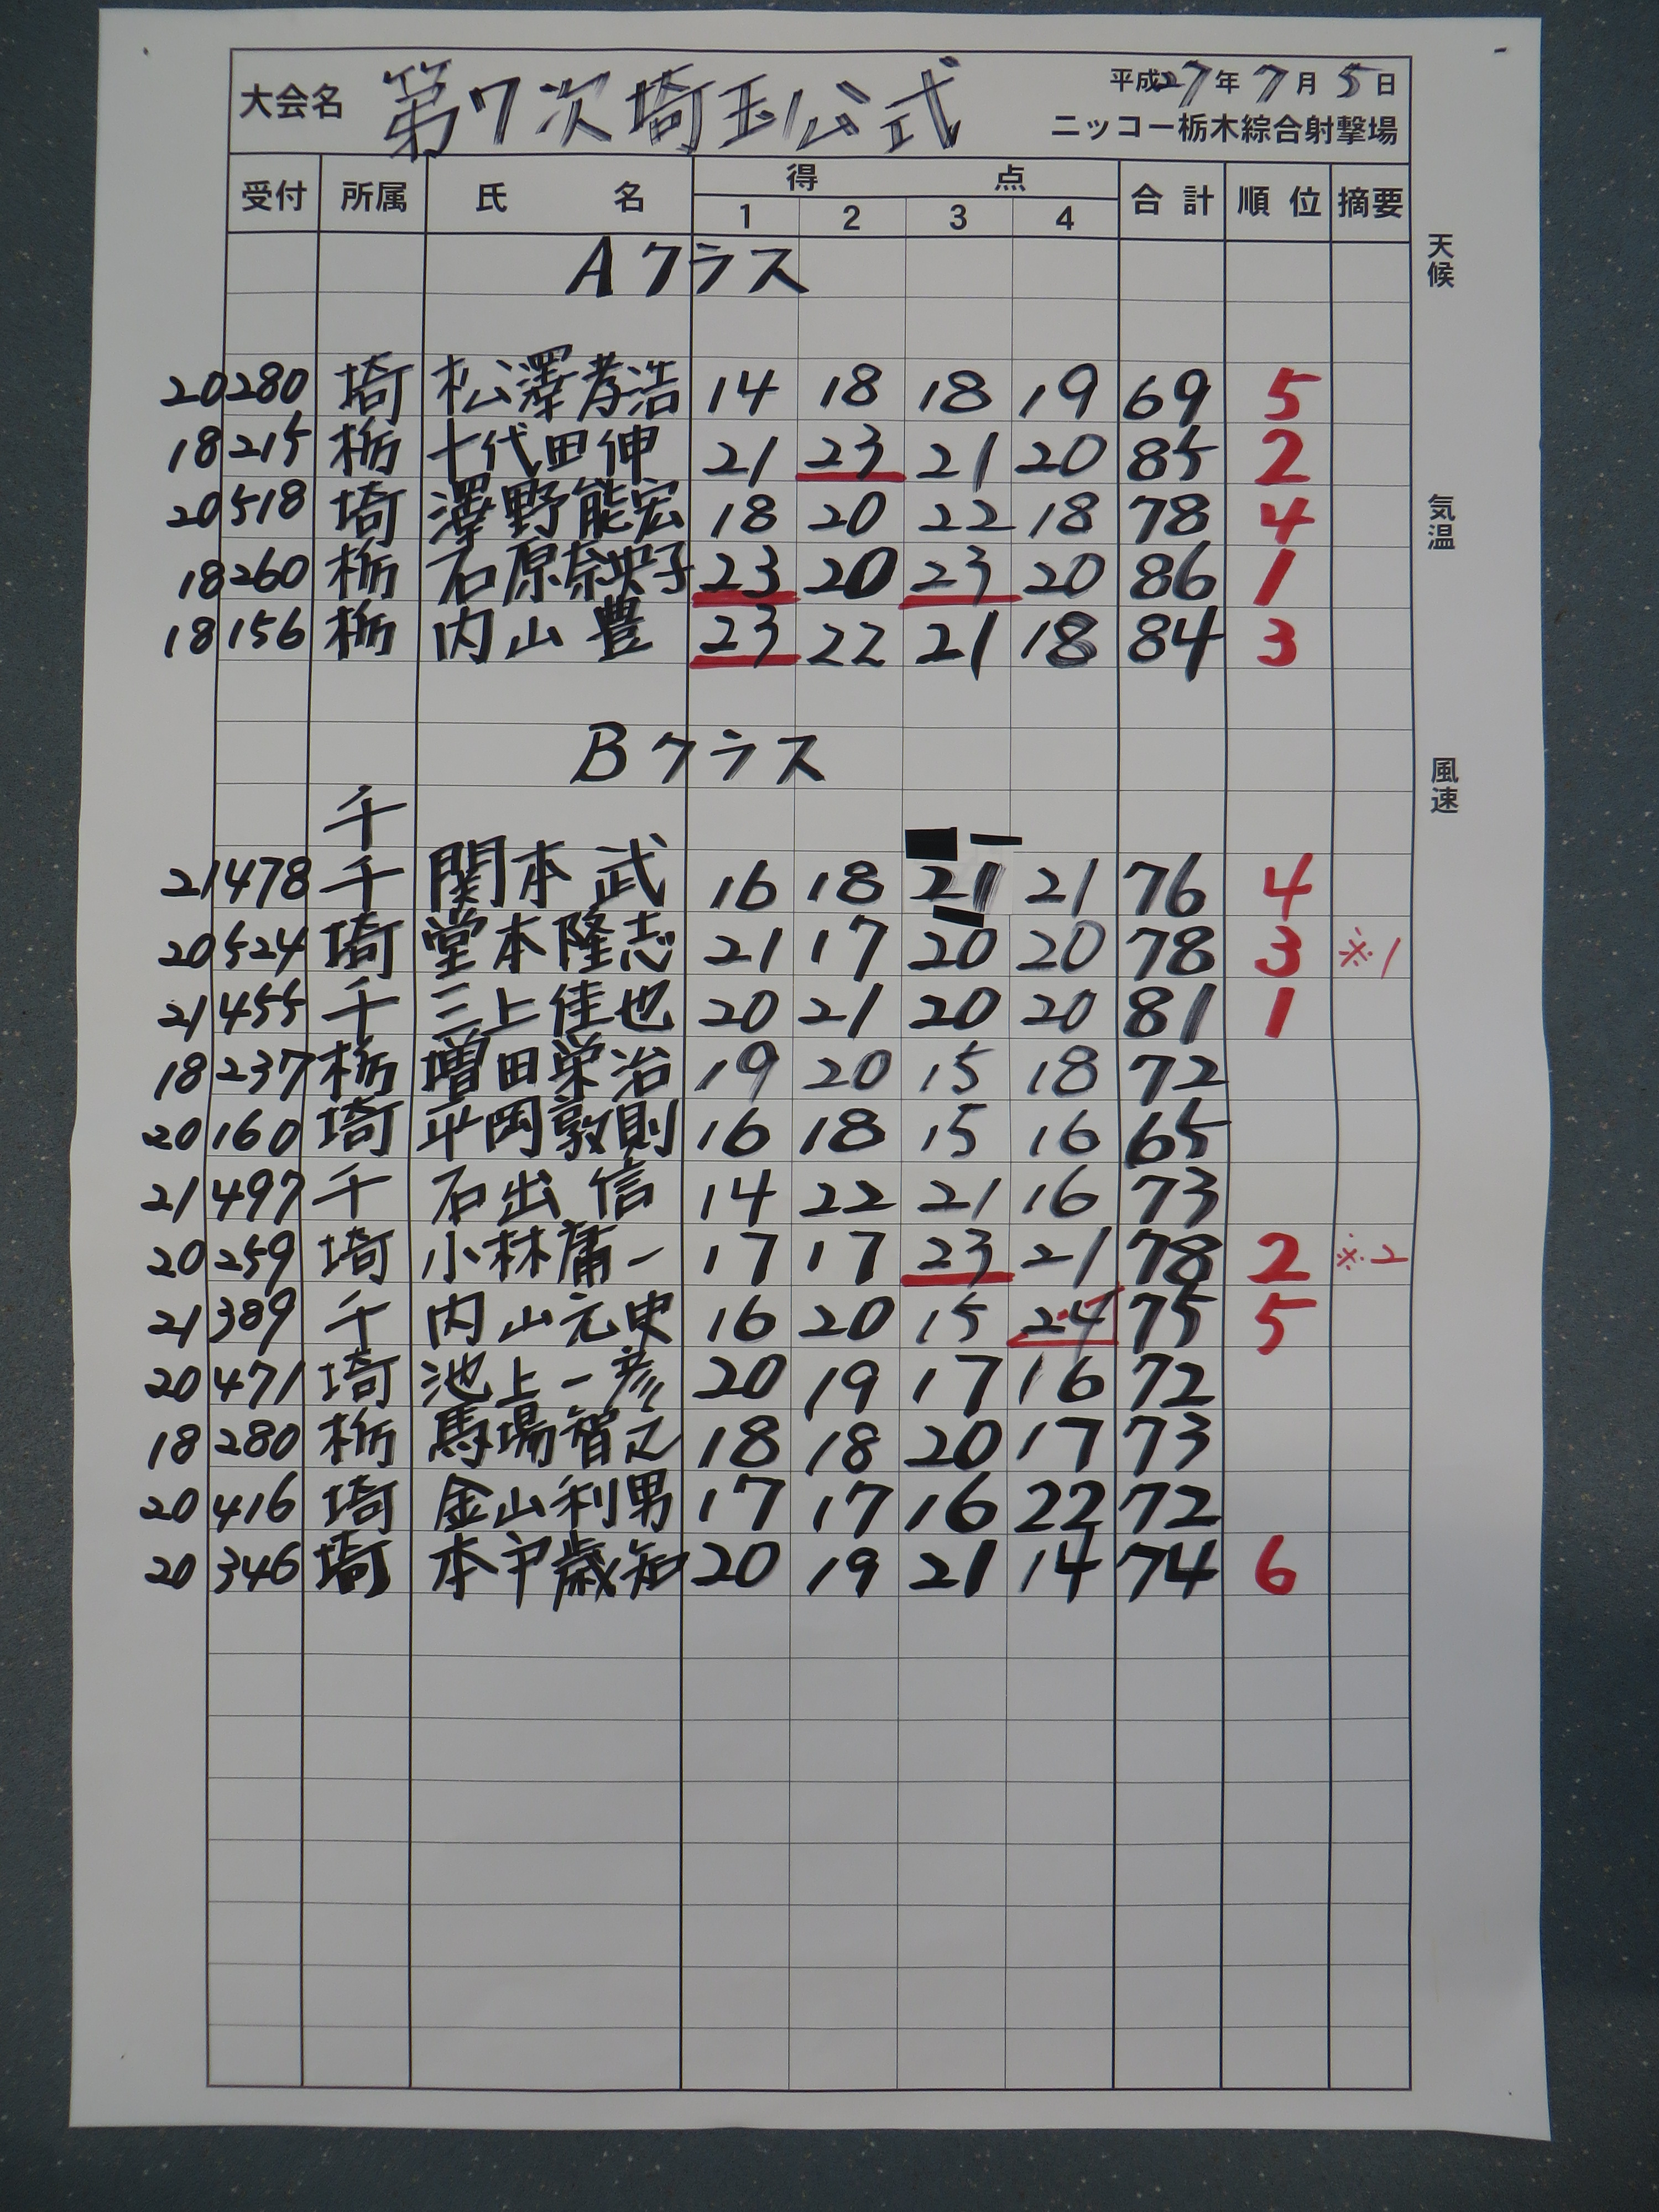 大会名 第7次埼玉公式 平成27年7月5日
ニッコー栃木綜合射撃場
受付 所属 氏名 得点 合計 順位 摘要
1 2 3 4
Aクラス
20280 埼 松澤孝浩 14 18 18 19 69 5
18215 栃 十代田伸 21 23 21 20 85 2
20518 埼 澤野能宏 18 20 22 18 78 4
18260 栃 石原奈央子 23 20 23 20 86 1
18156 栃 内山豊 23 22 21 18 84 3
Bクラス
千
21478 千 関本武 16 18 21 21 76 4
20524 埼 堂本隆志 21 17 20 20 78 3 ※1
21455 千 三上佳也 20 21 20 20 81 1
18237 栃 増田栄治 19 20 15 18 72
20160 埼 平岡敦則 16 18 15 16 65
21497 千 石出信 14 22 21 16 73
20259 埼 小林庸一 17 17 23 21 78 2 ※2
21389 千 内山元史 16 20 15 24 75 5
20471 埼 池上一彦 20 19 17 16 72
18280 栃 馬場智之 18 18 20 17 73
20416 埼 金山利男 17 17 16 22 72
20346 埼 本戸歳知 20 19 21 14 74 6
天候
気温
風速